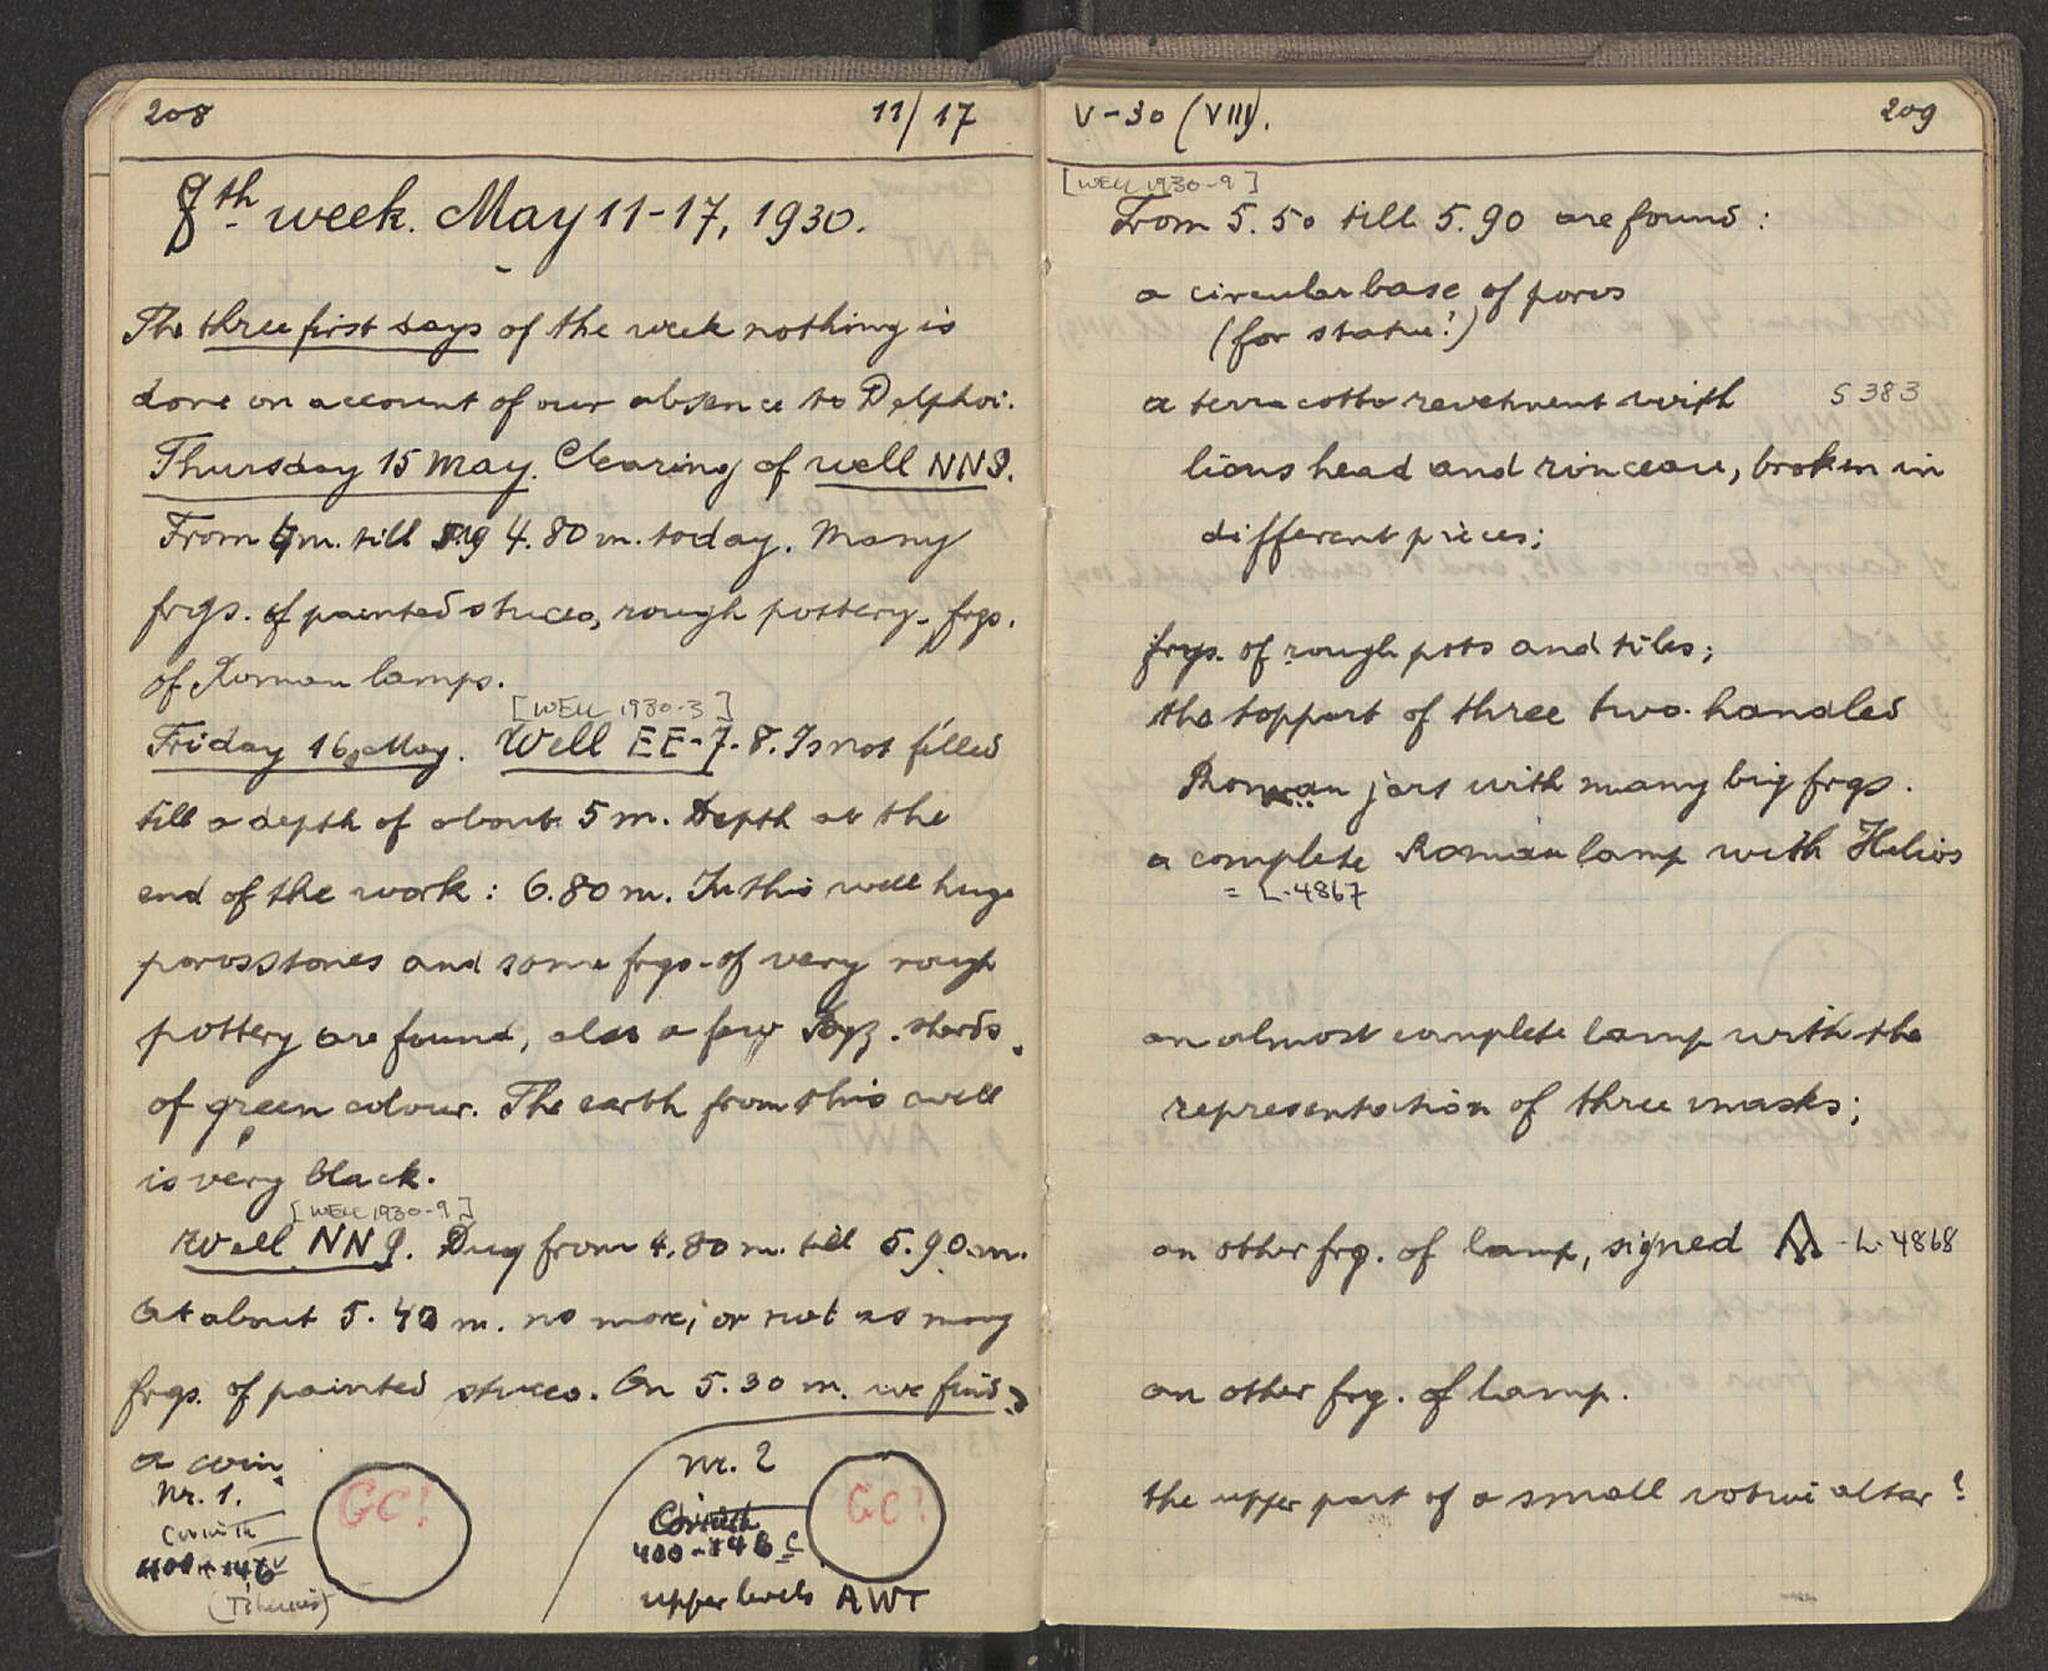 208
11/17
8th week. May 11-17, 1930.
The three first days of the week nothing is
done on account of our absence to Delphoi.
Thursday 15 May. Clearing of well NN9.
From 4m. till 4.80 m. today. Many
frgs. of painted stucco, rough pottery, frgs.
of Roman lamps.
[WELL 1930-3]
Friday 16 May. Well EE-7-8. Is not filled
till a depth of about 5 m. Depth at the
end of the work: 6.80 m. In this well huge
porosstones and some frgs. of very rough
pottery are found, also a few Byz. sherds
of green colour. The earth from this well
is very black.
[WELL 1930-9]
Well NN9. Dug from 4.80 m. till 5.90 m.
At about 5.40 m. no more, or not so many
frgs. of painted stucco. On 5.30 m. we find
a coin
Nr. 1.
Corinth
400-146
GC!
Nr. 2
Corinth
400-146
GC!
upper levels AWT
V-30 (VIII).
209
[WELL 1930-9]
From 5.50 till 5.90 are found:
a circular base of poros
(for statue?)
a terra cotta revetment with S 383
lions head and rinceau, broken in
different pieces;
frgs. of rough pots and tiles;
the toppart of three two-handled
Roman jars with many big frgs.
a complete Roman lamp with Helios
= L-4867
an almost complete lamp with the
representation of three masks;
an other frg. of lamp, signed - L-4868
an other frg. of lamp.
the upper part of a small votive altar?